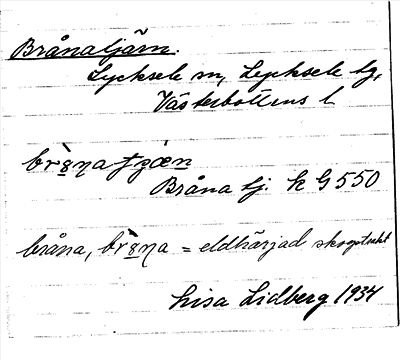 Brånatjärn.
Lycksele sn, Lycksele lg,
Västerbottens l
Bråna tj. k G 550
bråna, = eldhärjad skogstrakt
Lisa Lidberg 1934